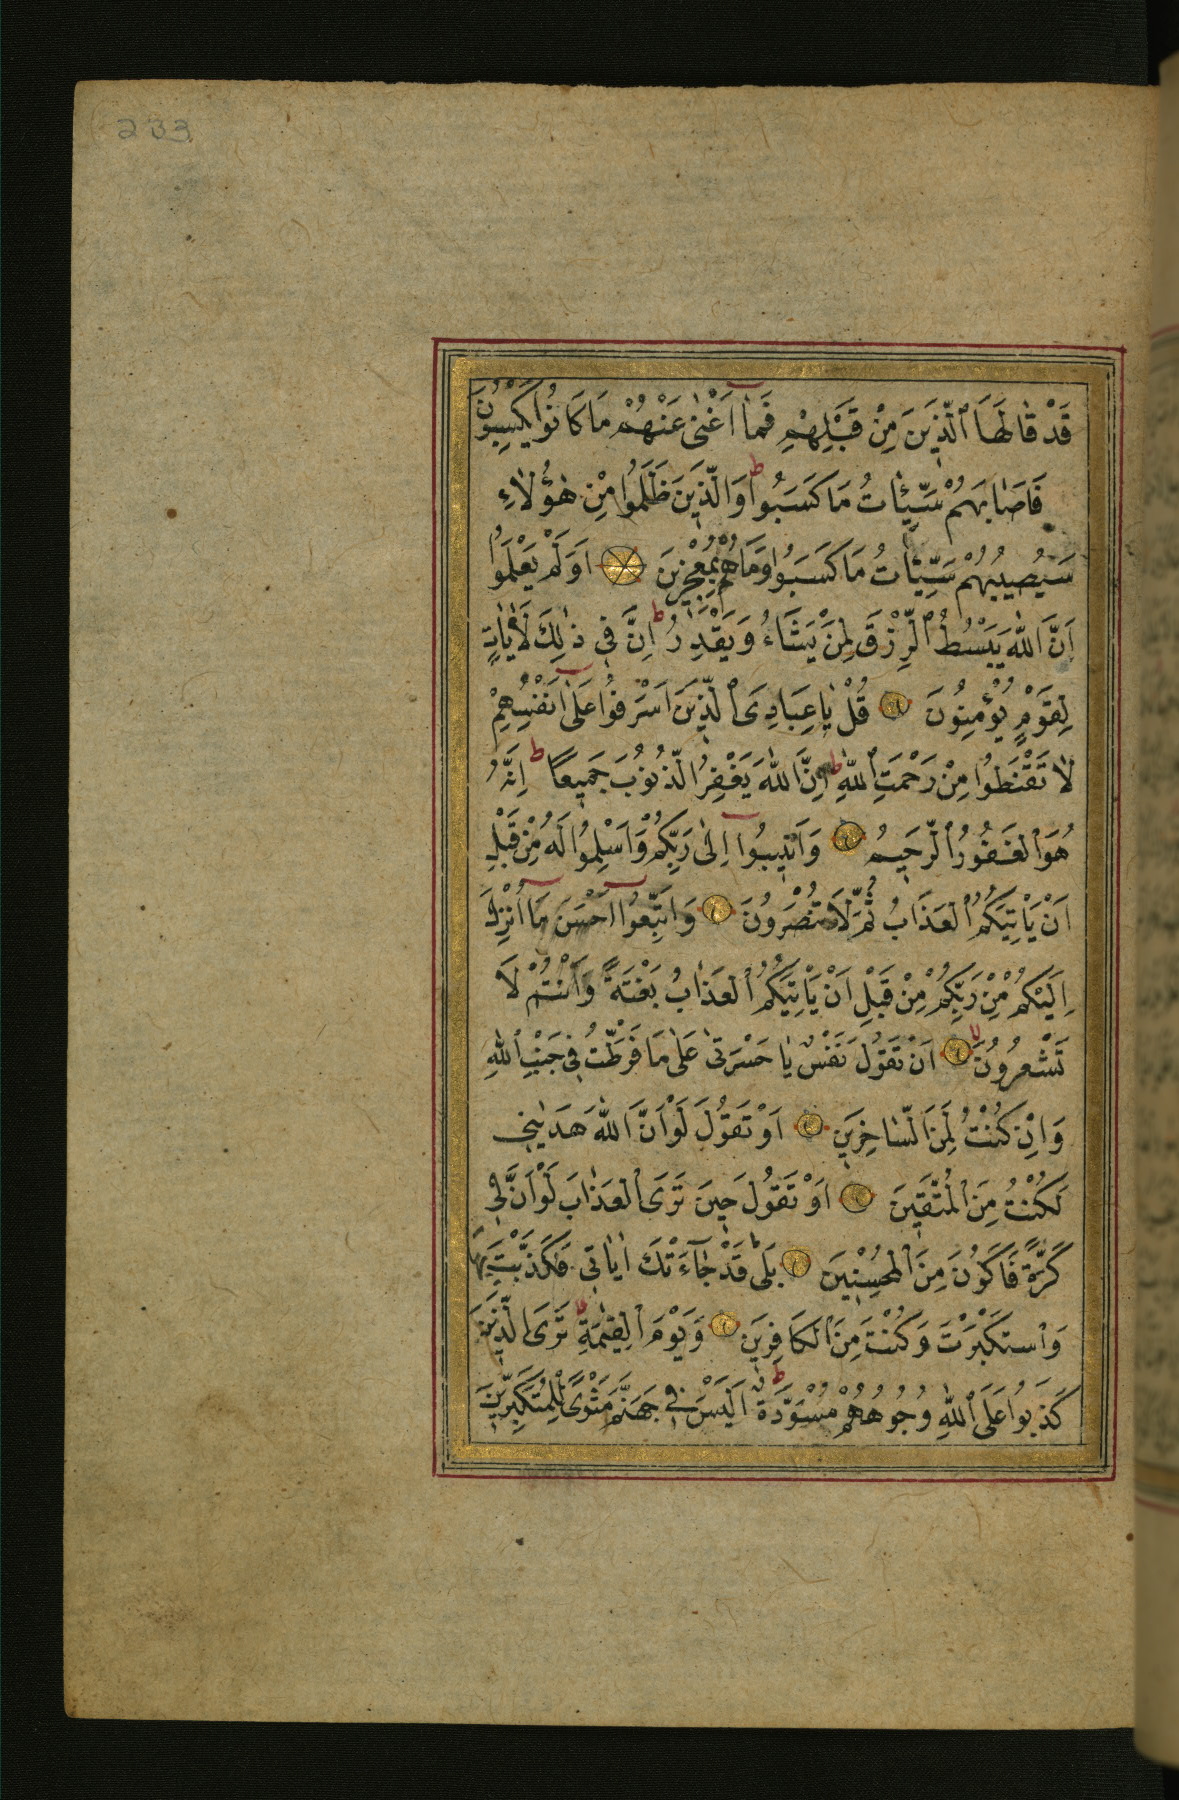 233
قَدْ قَالَهَا ٱلَّذِينَ مِنْ قَبْلِهِمْ فَمَآ اَغْنٰى عَنْهُمْ مَا كَانُوا يَكْسِبُونَ
فَاَصَابَهُمْ سَيِّئٰاتُ مَا كَسَبُوا ط وَالَّذِينَ ظَلَمُوا مِنْ هٰؤُلٰاءِ
سَيُصِيبُهُمْ سَيِّئٰاتُ مَا كَسَبُوا وَمَا هُمْ بِمُعْجِزِينَ اَوَلَمْ يَعْلَمُوا
اَنَّ اللّٰهَ يَبْسُطُ ٱلرِّزْقَ لِمَنْ يَشَاءُ وَيَقْدِرُ ط اِنَّ فِي ذٰلِكَ لَاٰيٰاتٍ
لِقَوْمٍ يُؤْمِنُونَ قُلْ يٰا عِبَادِىَ ٱلَّذِينَ اَسْرَفُوا عَلٰىٓ اَنْفُسِهِمْ
لٰا تَقْنَطُوا مِنْ رَحْمَتِ ٱللّٰهِ ط اِنَّ اللّٰهَ يَغْفِرُ الذُّنُوبَ جَمِيعًا ط اِنَّهُ
هُوَ ٱلْغَفُورُ ٱلرَّحِيمُ وَاَنِيبُوآ اِلٰى رَبِّكُمْ وَاَسْلِمُوا لَهُ مِنْ قَبْلِ
اَنْ يَأْتِيَكُمُ ٱلْعَذَابُ ثُمَّ لَا تُنْصَرُونَ وَاتَّبِعُوآ اَحْسَنَ مَآ اُنْزِلَ
اِلَيْكُمْ مِنْ رَبِّكُمْ مِنْ قَبْلِ اَنْ يَأْتِيَكُمُ ٱلْعَذَابُ بَغْتَةً وَاَنْتُمْ لَا
تَشْعُرُونَ لا اَنْ تَقُولَ نَفْسٌ يٰا حَسْرَتٰى عَلٰى مَا فَرَّطْتُ فِي جَنْبِ ٱللّٰهِ
وَاِنْ كُنْتُ لَمِنَ ٱلسّٰاخِرِينَ اَوْ تَقُولَ لَوْ اَنَّ اللّٰهَ هَدٰينِي
لَكُنْتُ مِنَ ٱلْمُتَّقِينَ اَوْ تَقُولَ حِينَ تَرَى ٱلْعَذَابَ لَوْ اَنَّ لِي
كَرَّةً فَاَكُونَ مِنَ ٱلْمُحْسِنِينَ بَلٰى قَدْ جَآءَتْكَ اٰيَاتِي فَكَذَّبْتَ بِهَا
وَٱسْتَكْبَرْتَ وَكُنْتَ مِنَ ٱلْكَافِرِينَ وَيَوْمَ ٱلْقِيٰمَةِ تَرَى ٱلَّذِينَ
كَذَبُوا عَلَى ٱللّٰهِ وُجُوهُهُمْ مُسْوَدَّةٌ ط اَلَيْسَ فِي جَهَنَّمَ مَثْوًى لِلْمُتَكَبِّرِينَ